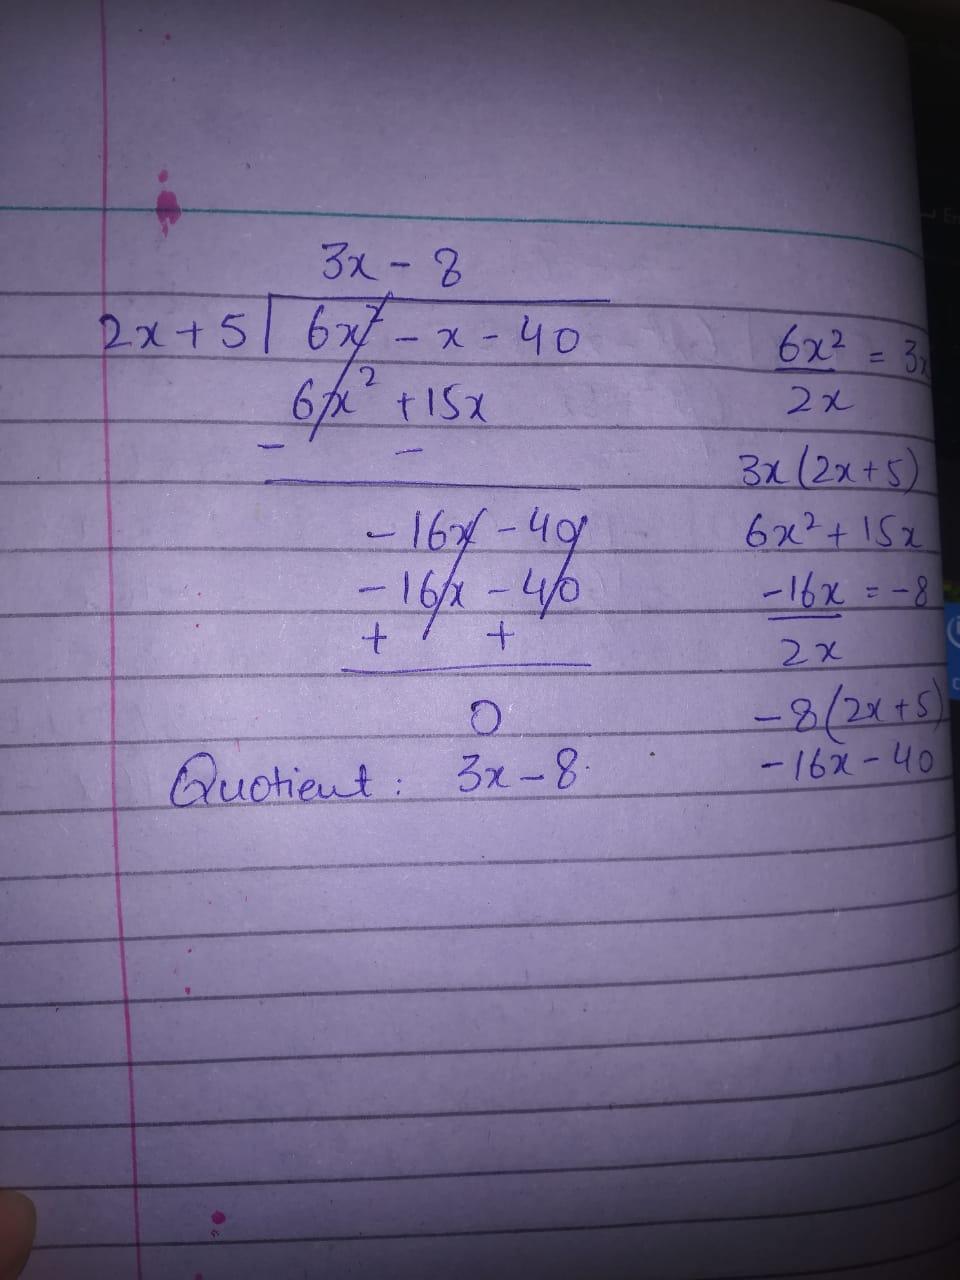 3x - 8
2x + 5 | 6x² - x - 40
6x² + 15x
- -
- 16x - 40
- 16x - 40
+ +
0
Quotient : 3x - 8.
6x² = 3x
2x
3x (2x + 5)
6x² + 15x
-16x = -8
2x
-8 (2x + 5)
-16x - 40